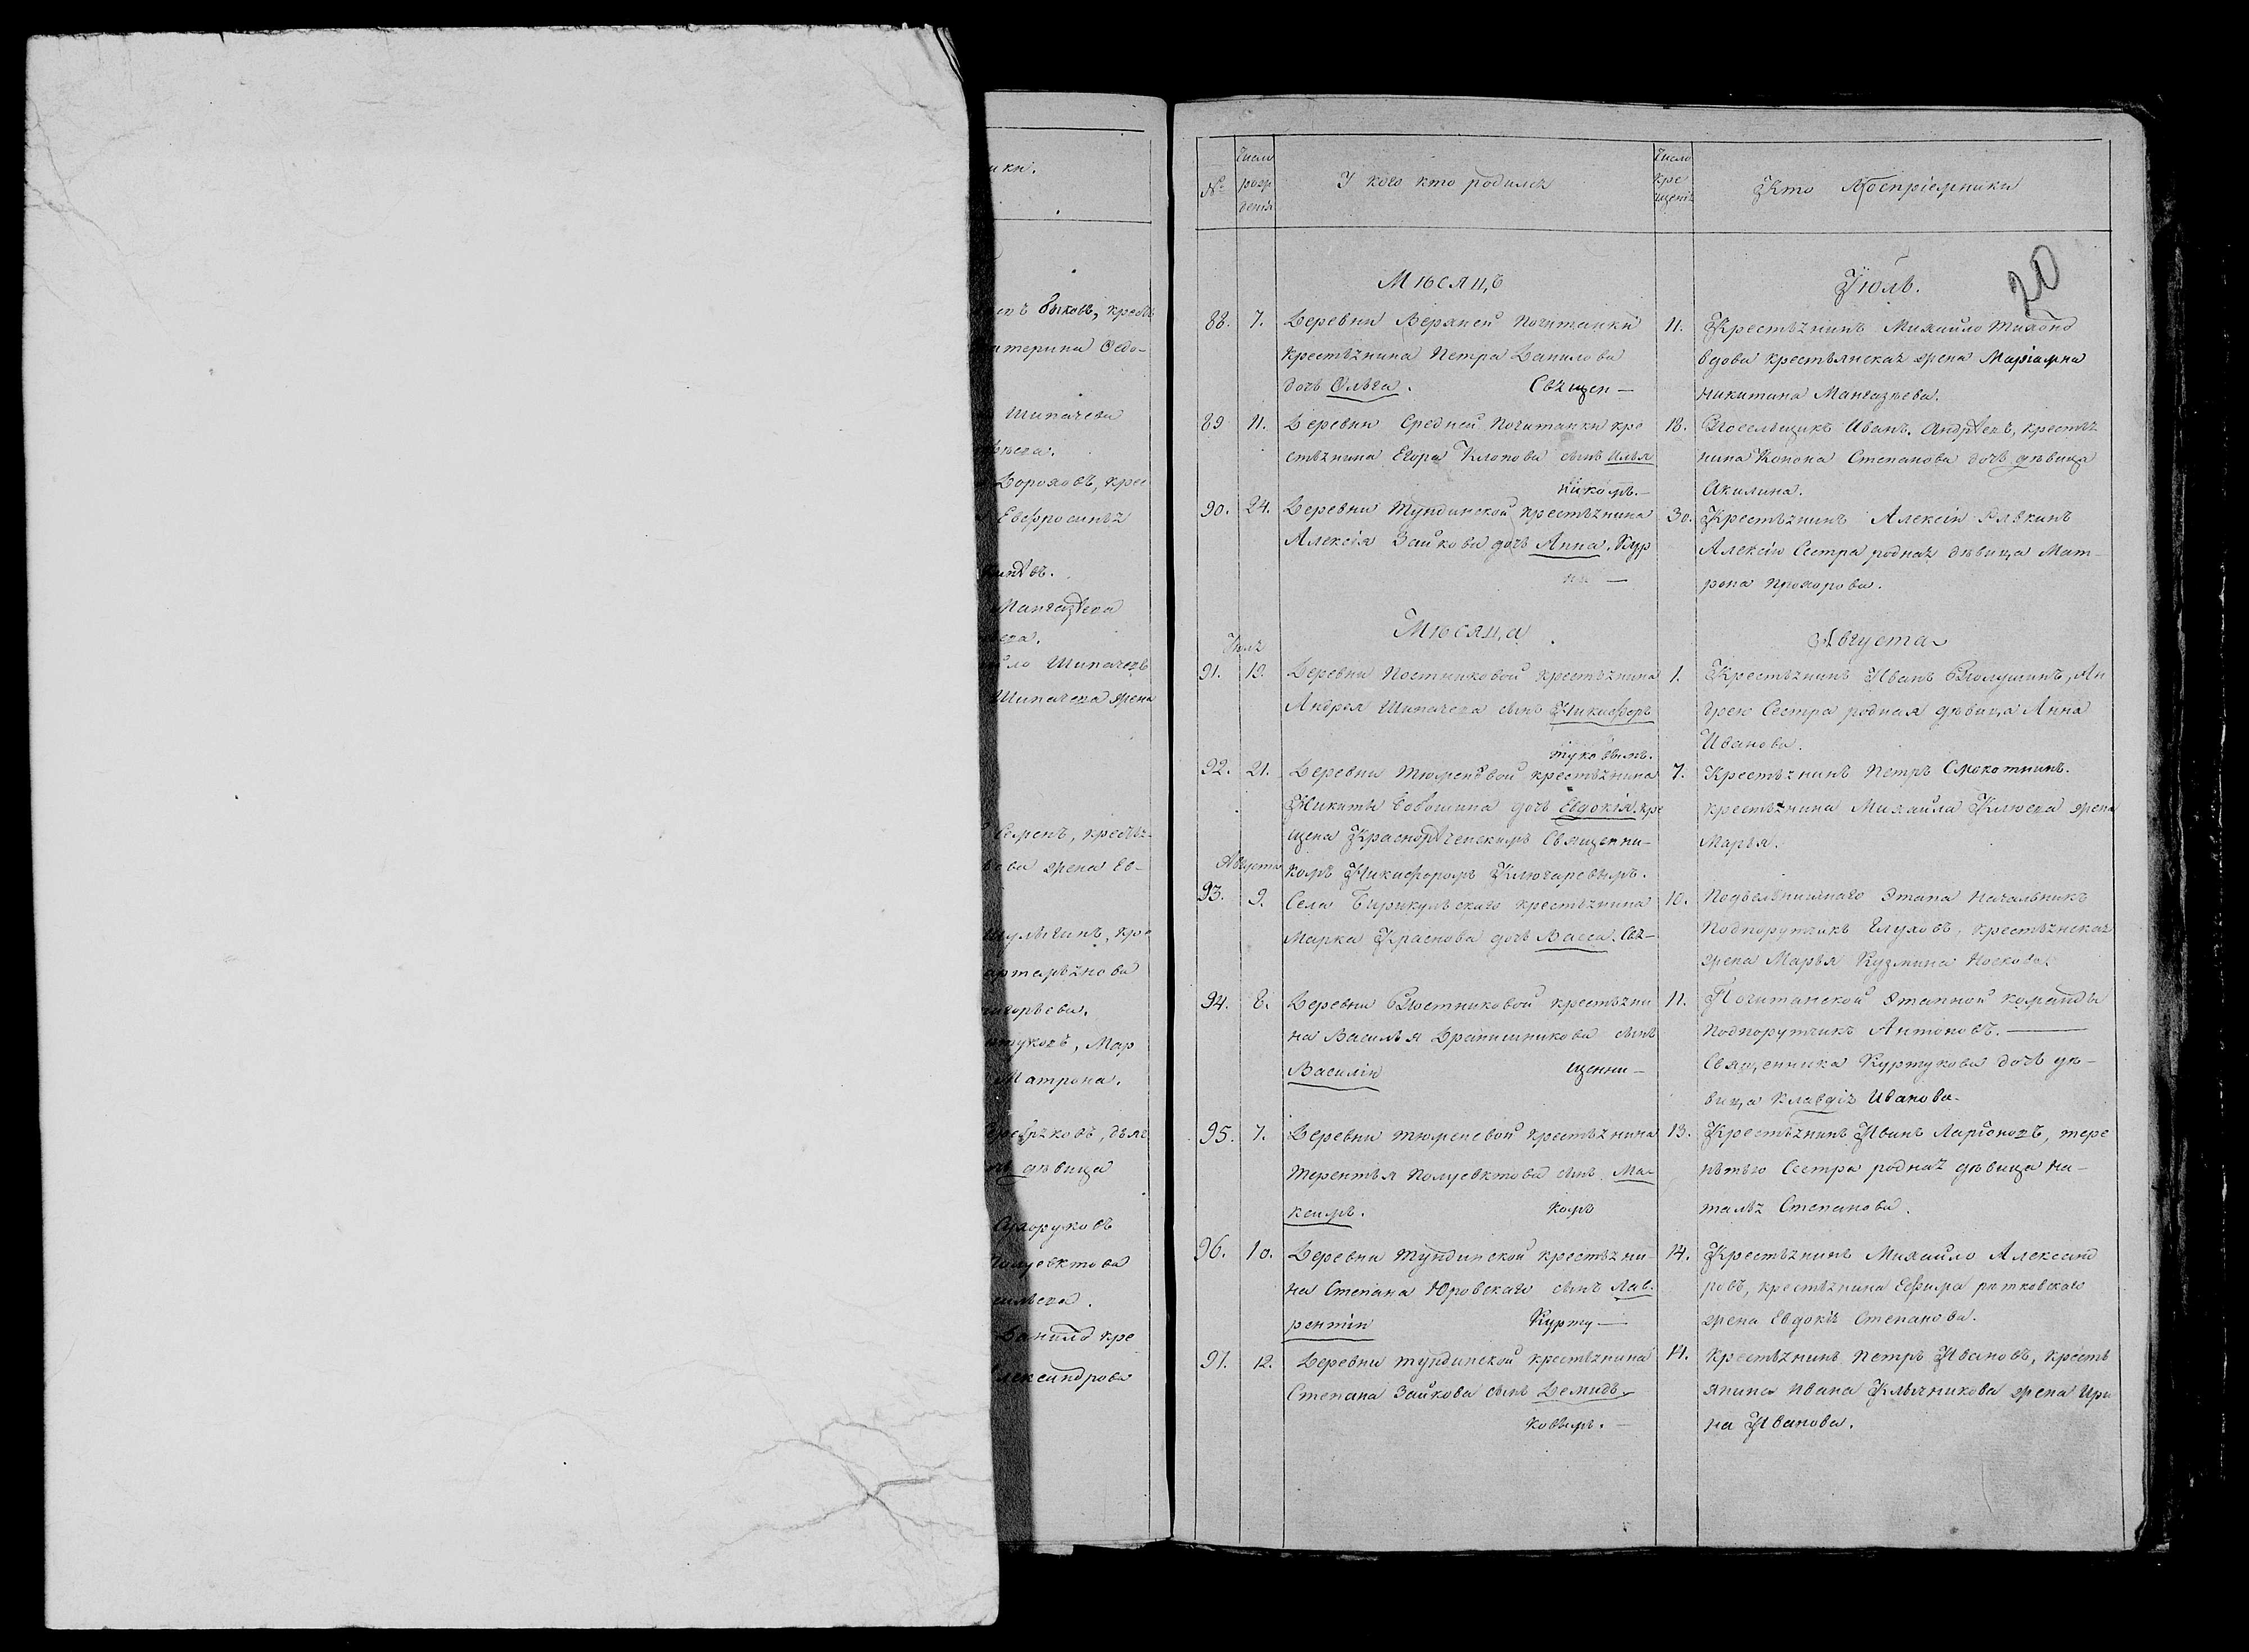 ики.
Быковъ, крестъ
атерина Ѳедо-
Шипачева
Дороховъ, крес
Евфросинья
Мангазѣева
Шипачевъ
Шипачева жена
Семенъ, кресть-
жена Ев-
Матрона.
дѣвица
Сухоруковъ
Полуевктова
Данило кре
Александрова
№
Число рождения
У кого кто родился
Число крещенія
Кто Воспріемники
20
Мѣсяцъ
Іюль.
88. 7. Деревни Верхней Почитанки
крестьянина Петра Данилова
дочь Ольга. Священ—
11. Крестьянинъ Михайло Тихоно
вдова крестьянская жена Маріамна
Никитина Мангазѣева.
89 11. Деревни Средней Почитанки кре
стьянина Егора Клопова сынъ Илья
никомъ.—
18. Посельщикъ Иванъ Андрѣевъ, крестья
нина Конона Степанова дочь дѣвица
Акилина.
90. 24. Деревни Тундинской крестьянина
Алексія Зайкова дочь Анна. Кур
30. Крестьянинъ Алексій Рявкинъ
Алексію Сестра родная дѣвица Мат-
рона Прохорова.
Мѣсяца
Августа
Іюля
91. 19. Деревни Постниковой крестьянина
Андрея Шипачева сынъ Никифоръ
туковымъ.
1. Крестьянинъ Иванъ Полушинъ, Ан
дрею Сестра родная дѣвица Анна
Иванова.
92. 21. Деревни Тюменевой крестьянина
Никиты Бобошина дочь Евдокія. кре
щена Краснорѣченскимъ Священни-
комъ Никифоромъ Ключаревымъ.
7. Крестьянинъ Петръ Смокотнинъ.
крестьянина Михайла Клюева жена
Марья.
Августа
93. 9. Села Бирикульскаго крестьянина
Марка Краснова дочь Васса. Свя-
10. Подъельничнаго Этапа Начальникъ
Подпорутчикъ Глуховъ, крестьянская
жена Марья Кузмина Носкова.
94. 8. Деревни Постниковой крестьяни
на Василья Драпишникова сынъ
Василій щенни-
11. Почитанской этапной команды
Подпорутчикъ Антоновъ.
Священника Куртукова дочь дѣ-
вица Клавдія Иванова.
95. 7. Деревни Тюменевой крестьянина
Терентья Полуевктова сынъ Ма-
ксимъ. комъ
13. Крестьянинъ Иванъ Ларіоновъ, Тере
нтью Сестра родная дѣвица На-
талья Степанова.
96. 10. Деревни Тундинской крестьяни-
на Степана Юровскаго сынъ Лав-
рентій Курту—
14. Крестьянинъ Михайло Александ
ровъ, крестьянина Ефима Ритковскаго
жена Евдокія Степанова.
97. 12. Деревни Тундинской крестьянина
Степана Зайкова сынъ Демидъ.
ковымъ.—
14. Крестьянинъ Петръ Ивановъ, кресть
янина Ивана Ключникова жена Ири
на Иванова.